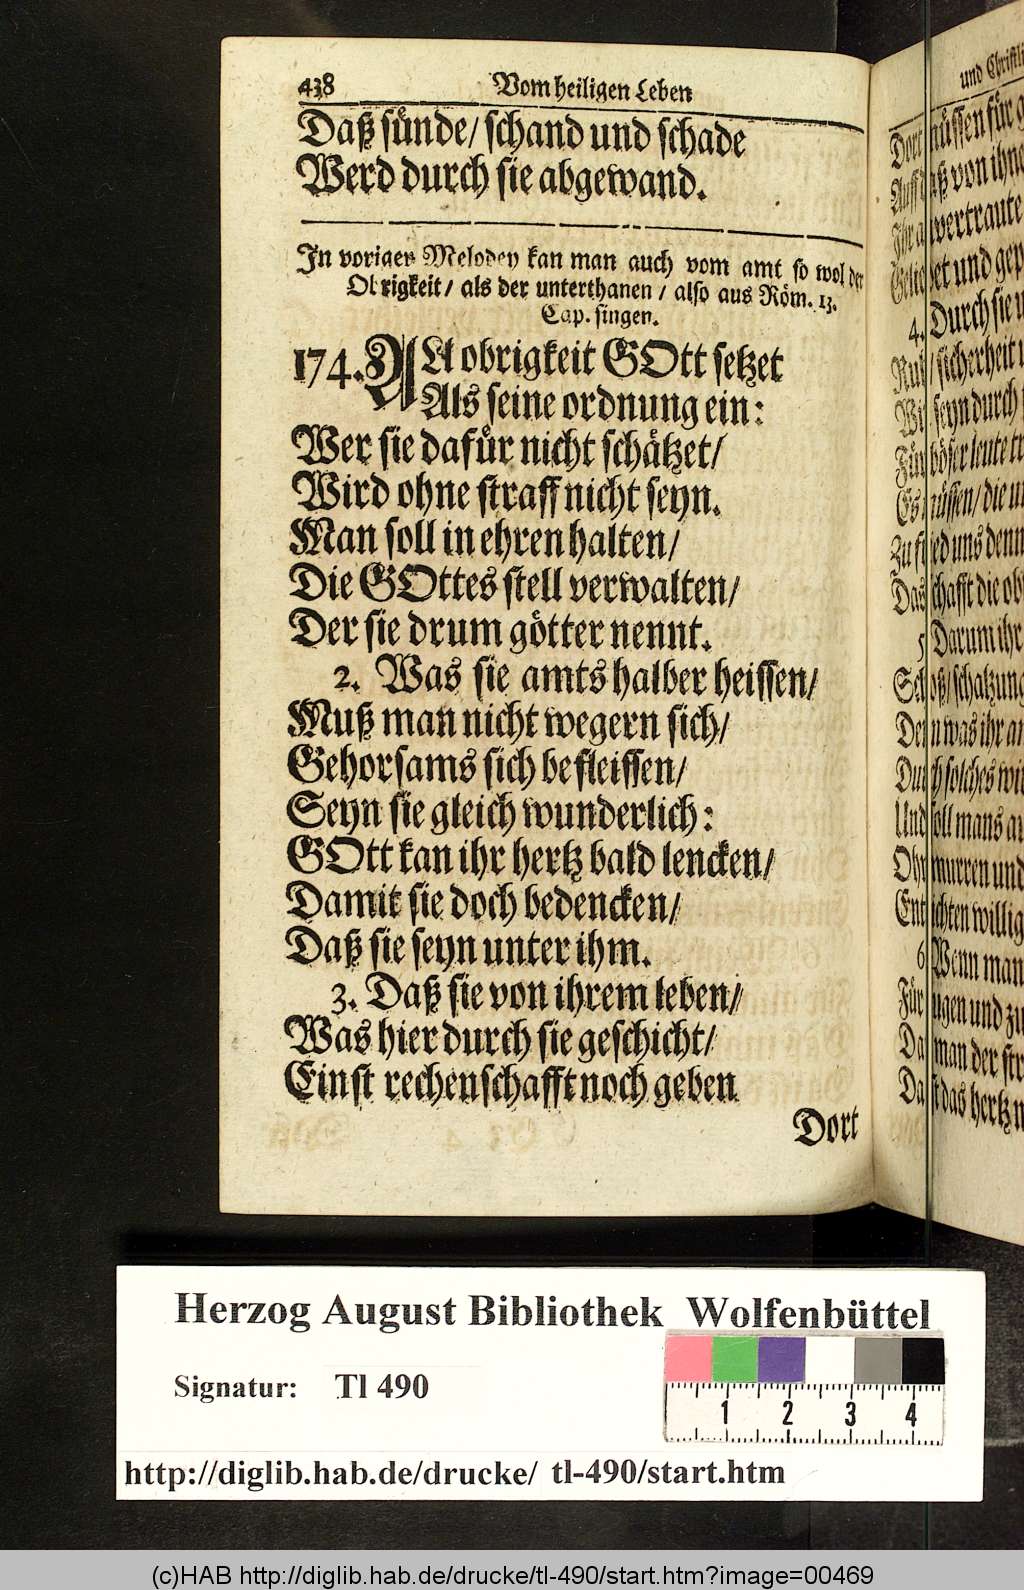 438 Vom heiligen Leben
Daß sünde/ schand und schade
Werd durch sie abgewand.
In voriger Melodey kan man auch vom amt so wol der
Obrigkeit/ als der unterthanen/ also aus Röm. 13.
Cap. singen.
174. All obrigkeit GOtt setzet
Als seine ordnung ein:
Wer sie dafür nicht schätzet/
Wird ohne straff nicht seyn.
Man soll in ehren halten/
Die GOttes stell verwalten/
Der sie drum götter nennt.
2. Was sie amts halber heissen/
Muß man nicht wegern sich/
Gehorsams sich befleissen/
Seyn sie gleich wunderlich:
GOtt kan ihr hertz bald lencken/
Damit sie doch bedencken/
Daß sie seyn unter ihm.
3. Daß sie von ihrem leben/
Was hier durch sie geschicht/
Einst rechenschafft noch geben
Dort
und Christl
Dort müssen für g
von ihne
vertraute
und gep
4. Durch sie u
sicherheit
seyn durch
böser leute
müssen/ die u
uns denn
Das schafft die ob
5 Darum ihr
Schoß/ schatzung
Denn was ihr a
Durch solches wi
Und soll mans a
Ohn murren und
Entrichten willig
6 Wenn man
Für und zu
man der str
das hertz n
Herzog August Bibliothek Wolfenbüttel
Signatur: Tl 490
1 2 3 4
http://diglib.hab.de/drucke/ tl-490/start.htm
(c)HAB http://diglib.hab.de/drucke/tl-490/start.htm?image=00469